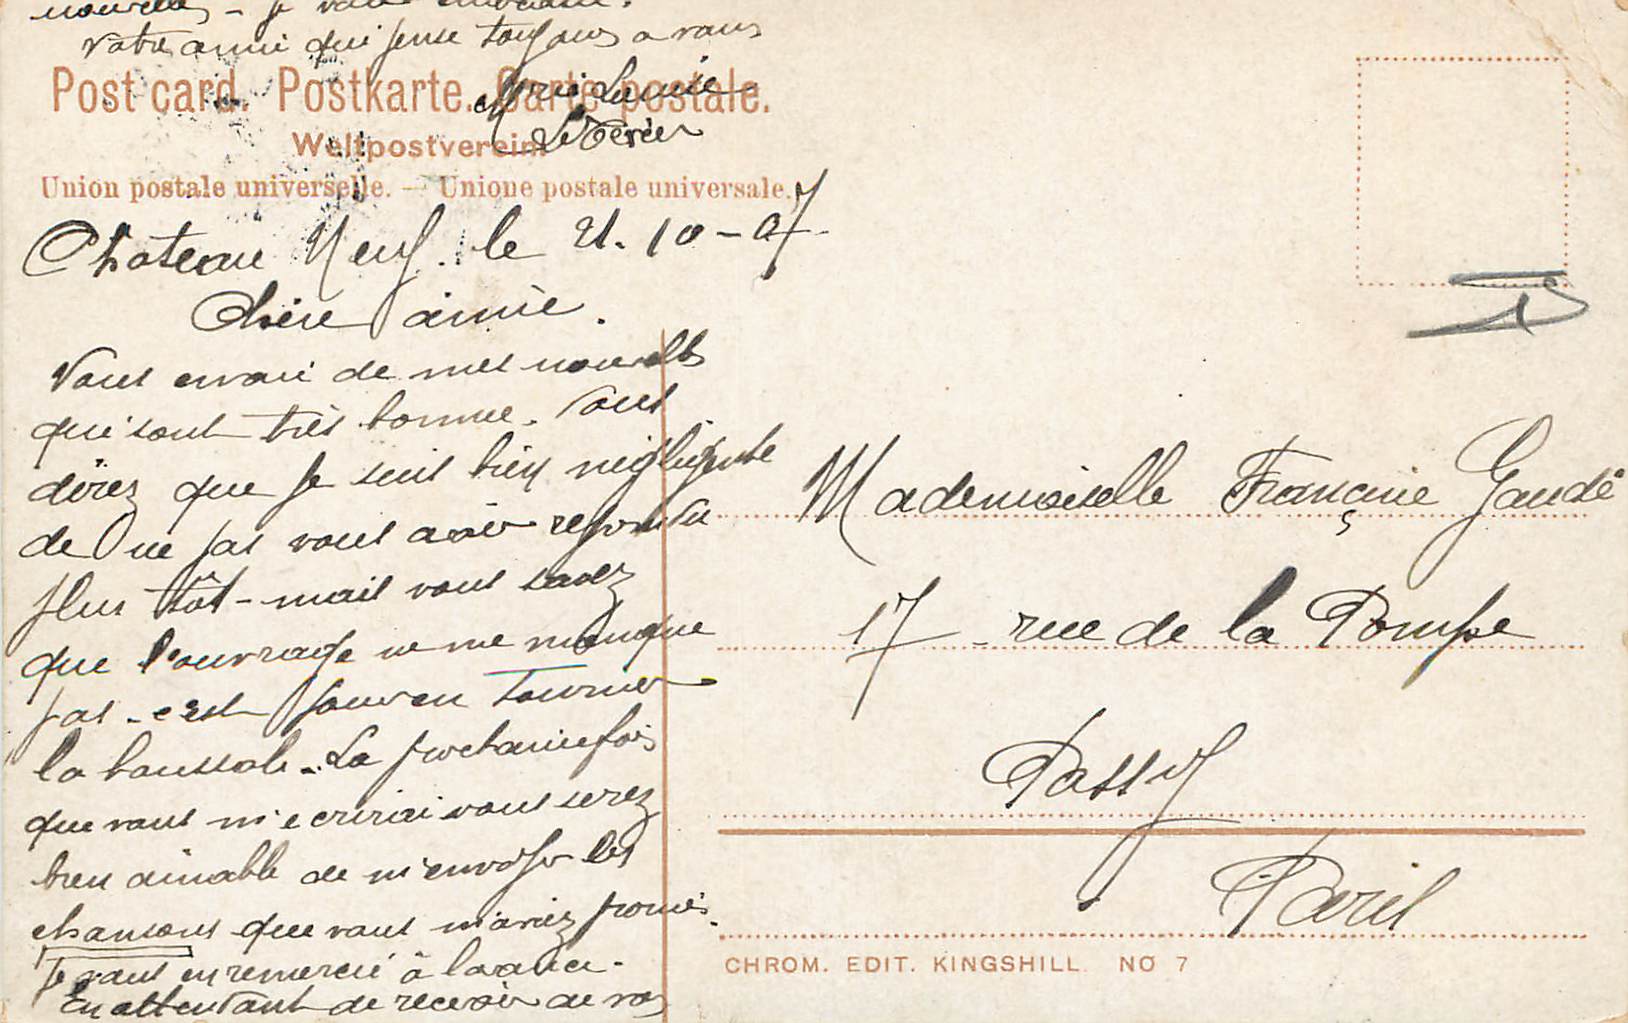 nouvelles - je vous embrasse.
Votre amie qui pense toujours a vous
Post card. Postkarte. Carte postale.
Marie Louise
Weltpostverein.
Union postale universelle. — Unione postale universale.
Chateau Neuf. le 21.10-07.
Chère amie.
Vous envoi de mes nouvelles
qui sont très bonne. Vous
direz que je suis bien négligente
de ne pas vous avoir repondu
plus tôt - mais vous savez
que l'ouvrage ne me manque
pas - c'est souven tourner
la
La prochaine fois
que vous m'ecrirai vous serez
bien aimable de m'envoyer les
chansons que vous m'aviez promis.
Je vous en remercie à lavance.
En attentant de recevoir de vos
Mademoiselle Françine Gaudé
17 - rue de la Pompe
Passy
Paris
CHROM. EDIT. KINGSHILL NO 7